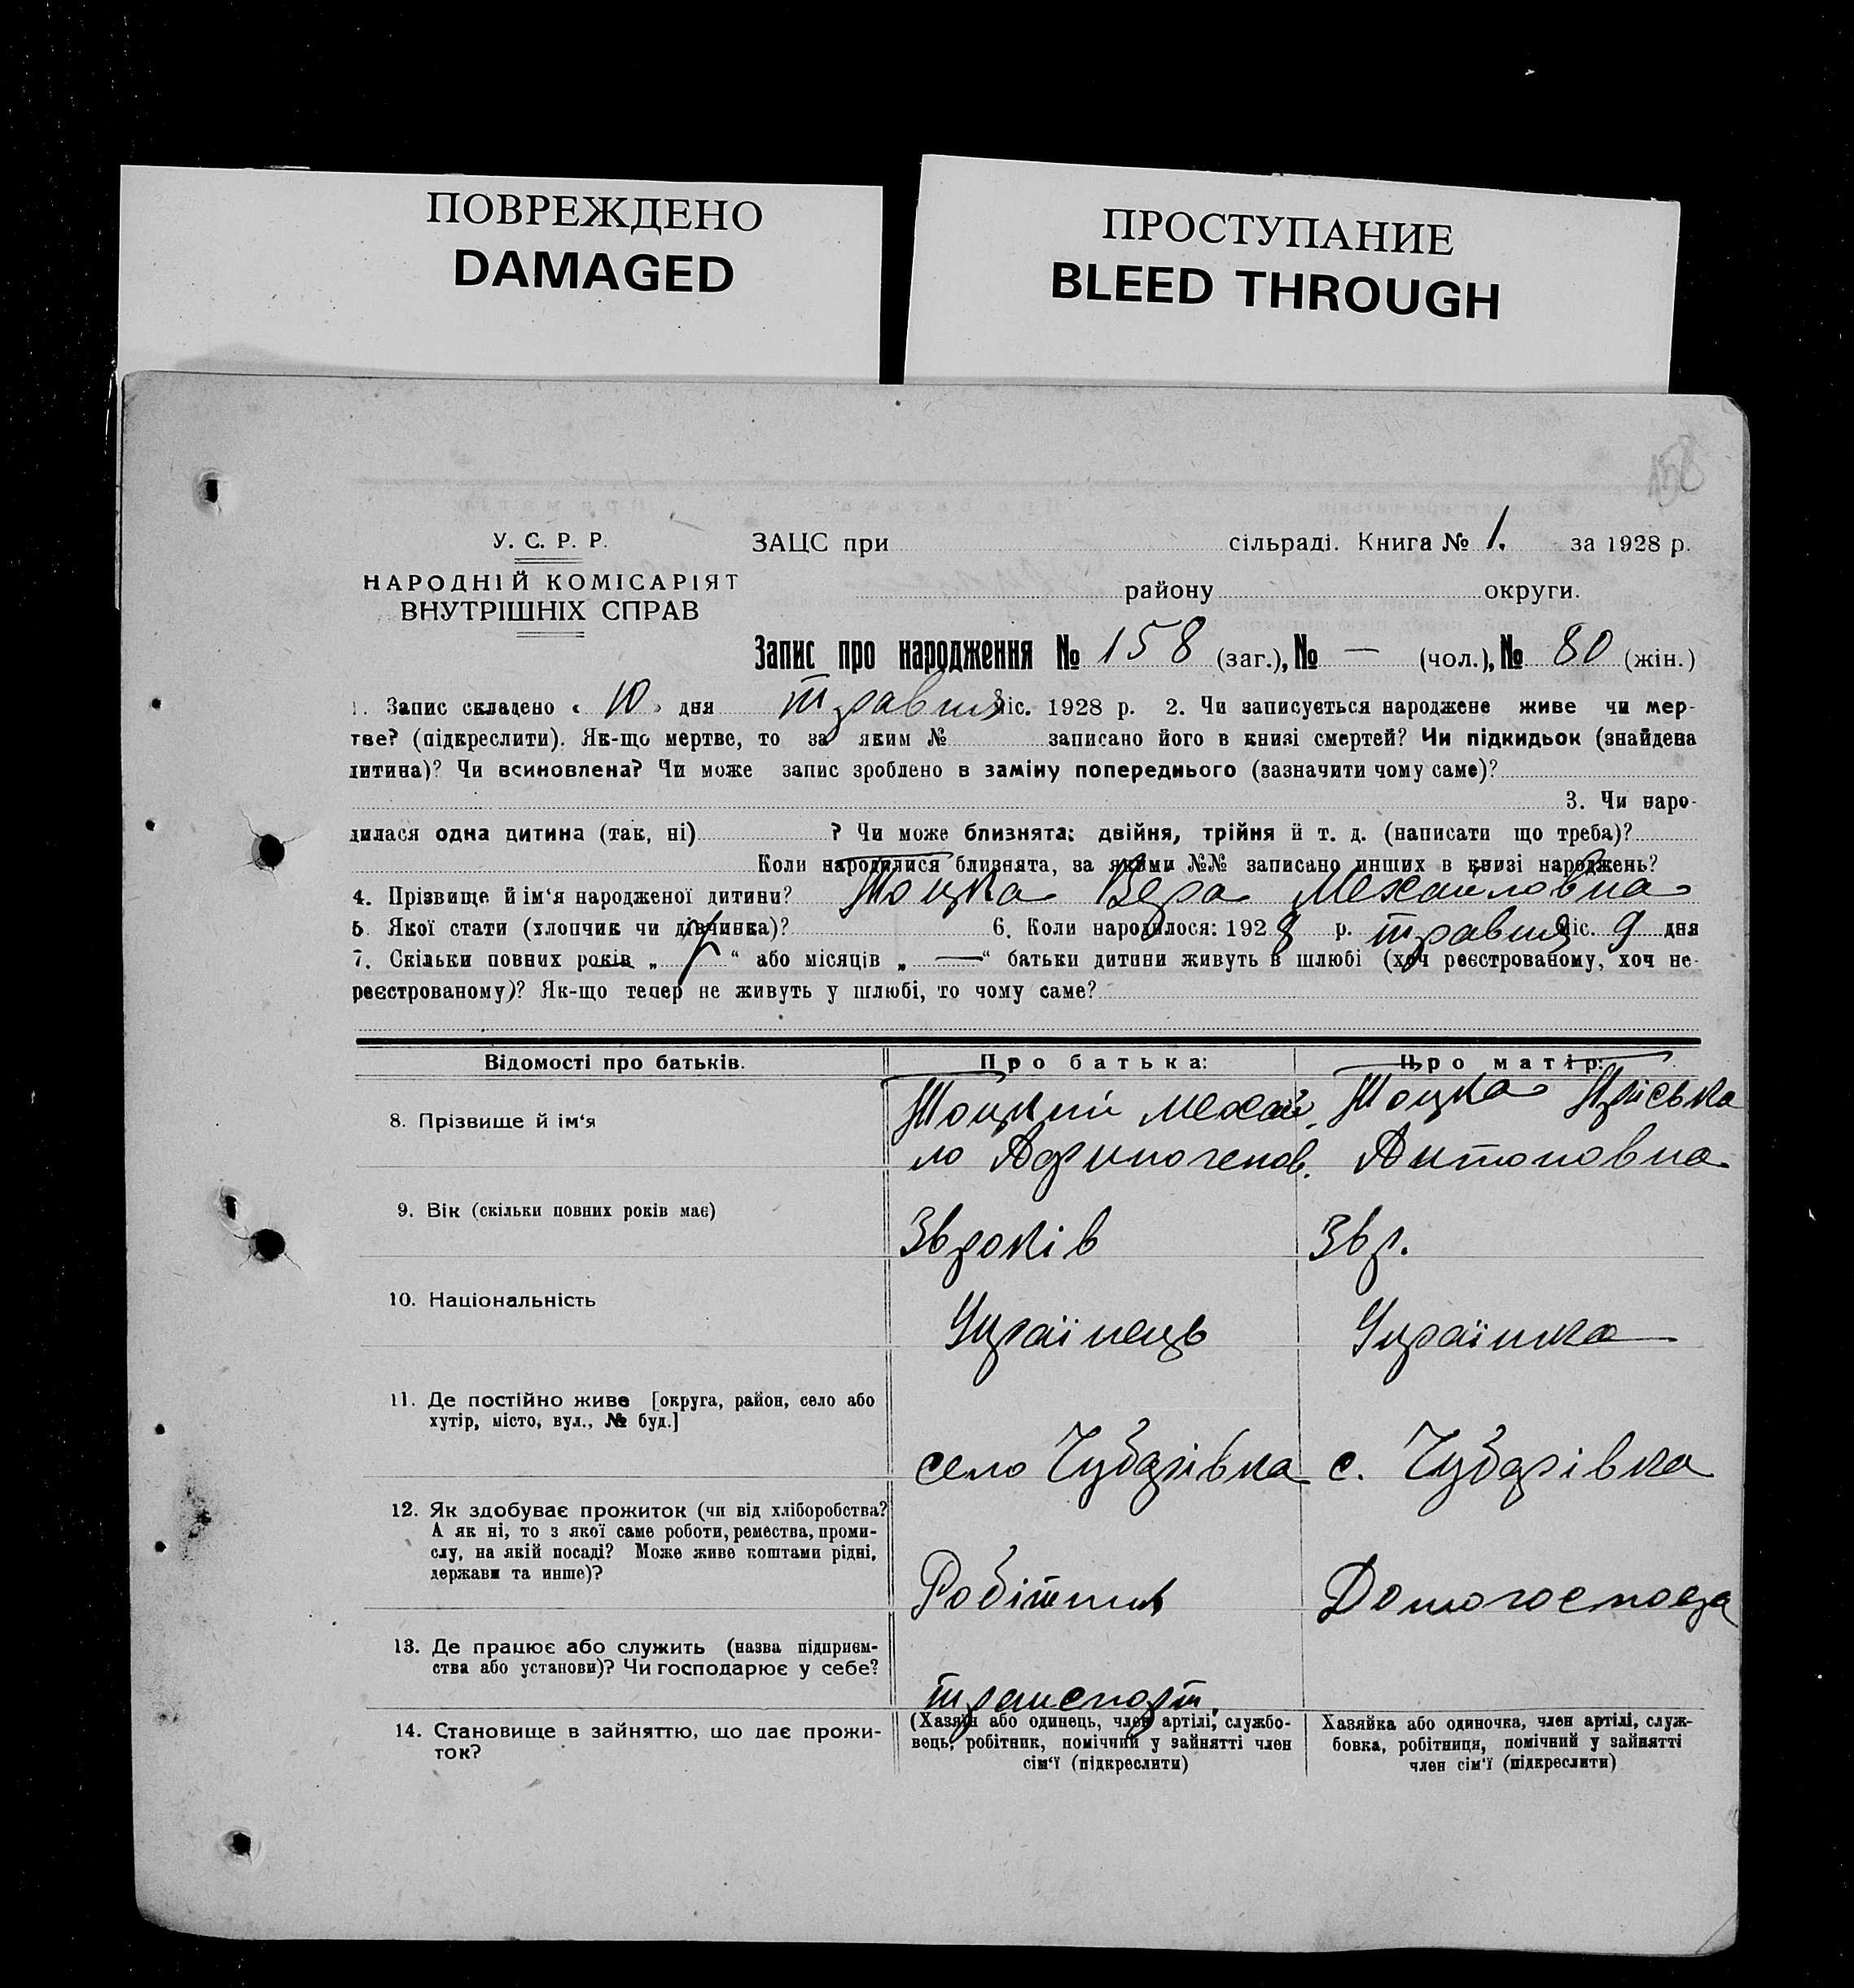 ПОВРЕЖДЕНО
DAMAGED
ПРОСТУПАНИЕ
BLEED THROUGH
158
У. С. Р. Р.
НАРОДНІЙ КОМІСАРІЯТ
ВНУТРІШНІХ СПРАВ
ЗАЦС при сільраді. Книга № 1. за 1928 р.
району округи.
Запис про народження № 158 (заг.), № — (чол.), № 80 (жін.)
1. Запис складено « 10 » дня травня міс. 1928 р. 2. Чи записується народжене живе чи мер-
тве? (підкреслити). Як-що мертве, то за яким № записано його в книзі смертей? Чи підкидьок (знайдена
дитина)? Чи всиновлена? Чи може запис зроблено в заміну попереднього (зазначити чому саме)?
3. Чи наро-
дилася одна дитина (так, ні) ? Чи може близнята: двійня, трійня й т. д. (написати що треба)?
Коли народилися близнята, за якими №№ записано инших в книзі народжень?
4. Прізвище й ім'я народженої дитини? Тоцка Вера Михайловна
5. Якої стати (хлопчик чи дівчинка)? 6. Коли народилося: 1928 р. травня міс. 9 дня
7. Скільки повних років „ “ або місяців „ — “ батьки дитини живуть в шлюбі (хоч реєстрованому, хоч не-
реєстрованому)? Як-що тепер не живуть у шлюбі, то чому саме?
Відомості про батьків. Про батька: Про матір:
8. Прізвище й ім'я
Тоцкий Михай Тоцка
ло Антоновна
9. Вік (скільки повних років має)
36 років 36 р.
10. Національність
Українець Українка
11. Де постійно живе [округа, район, село або
хутір, місто, вул., № буд.]
село Чубарівка с. Чубарівка
12. Як здобуває прожиток (чи від хліборобства?
А як ні, то з якої саме роботи, ремества, проми-
слу, на якій посаді? Може живе коштами рідні,
держави та инше)?
Робітник Домогоспода
13. Де працює або служить (назва підприєм-
ства або установи)? Чи господарює у себе?
транспорт.
14. Становище в зайняттю, що дає прожи-
ток?
(Хазяїн або одинець, член артілі, службо-
вець, робітник, помічний у зайнятті член
сім'ї (підкреслити)
Хазяйка або одиночка, член артілі, служ-
бовка, робітниця, помічний у зайнятті
член сім'ї (підкреслити)